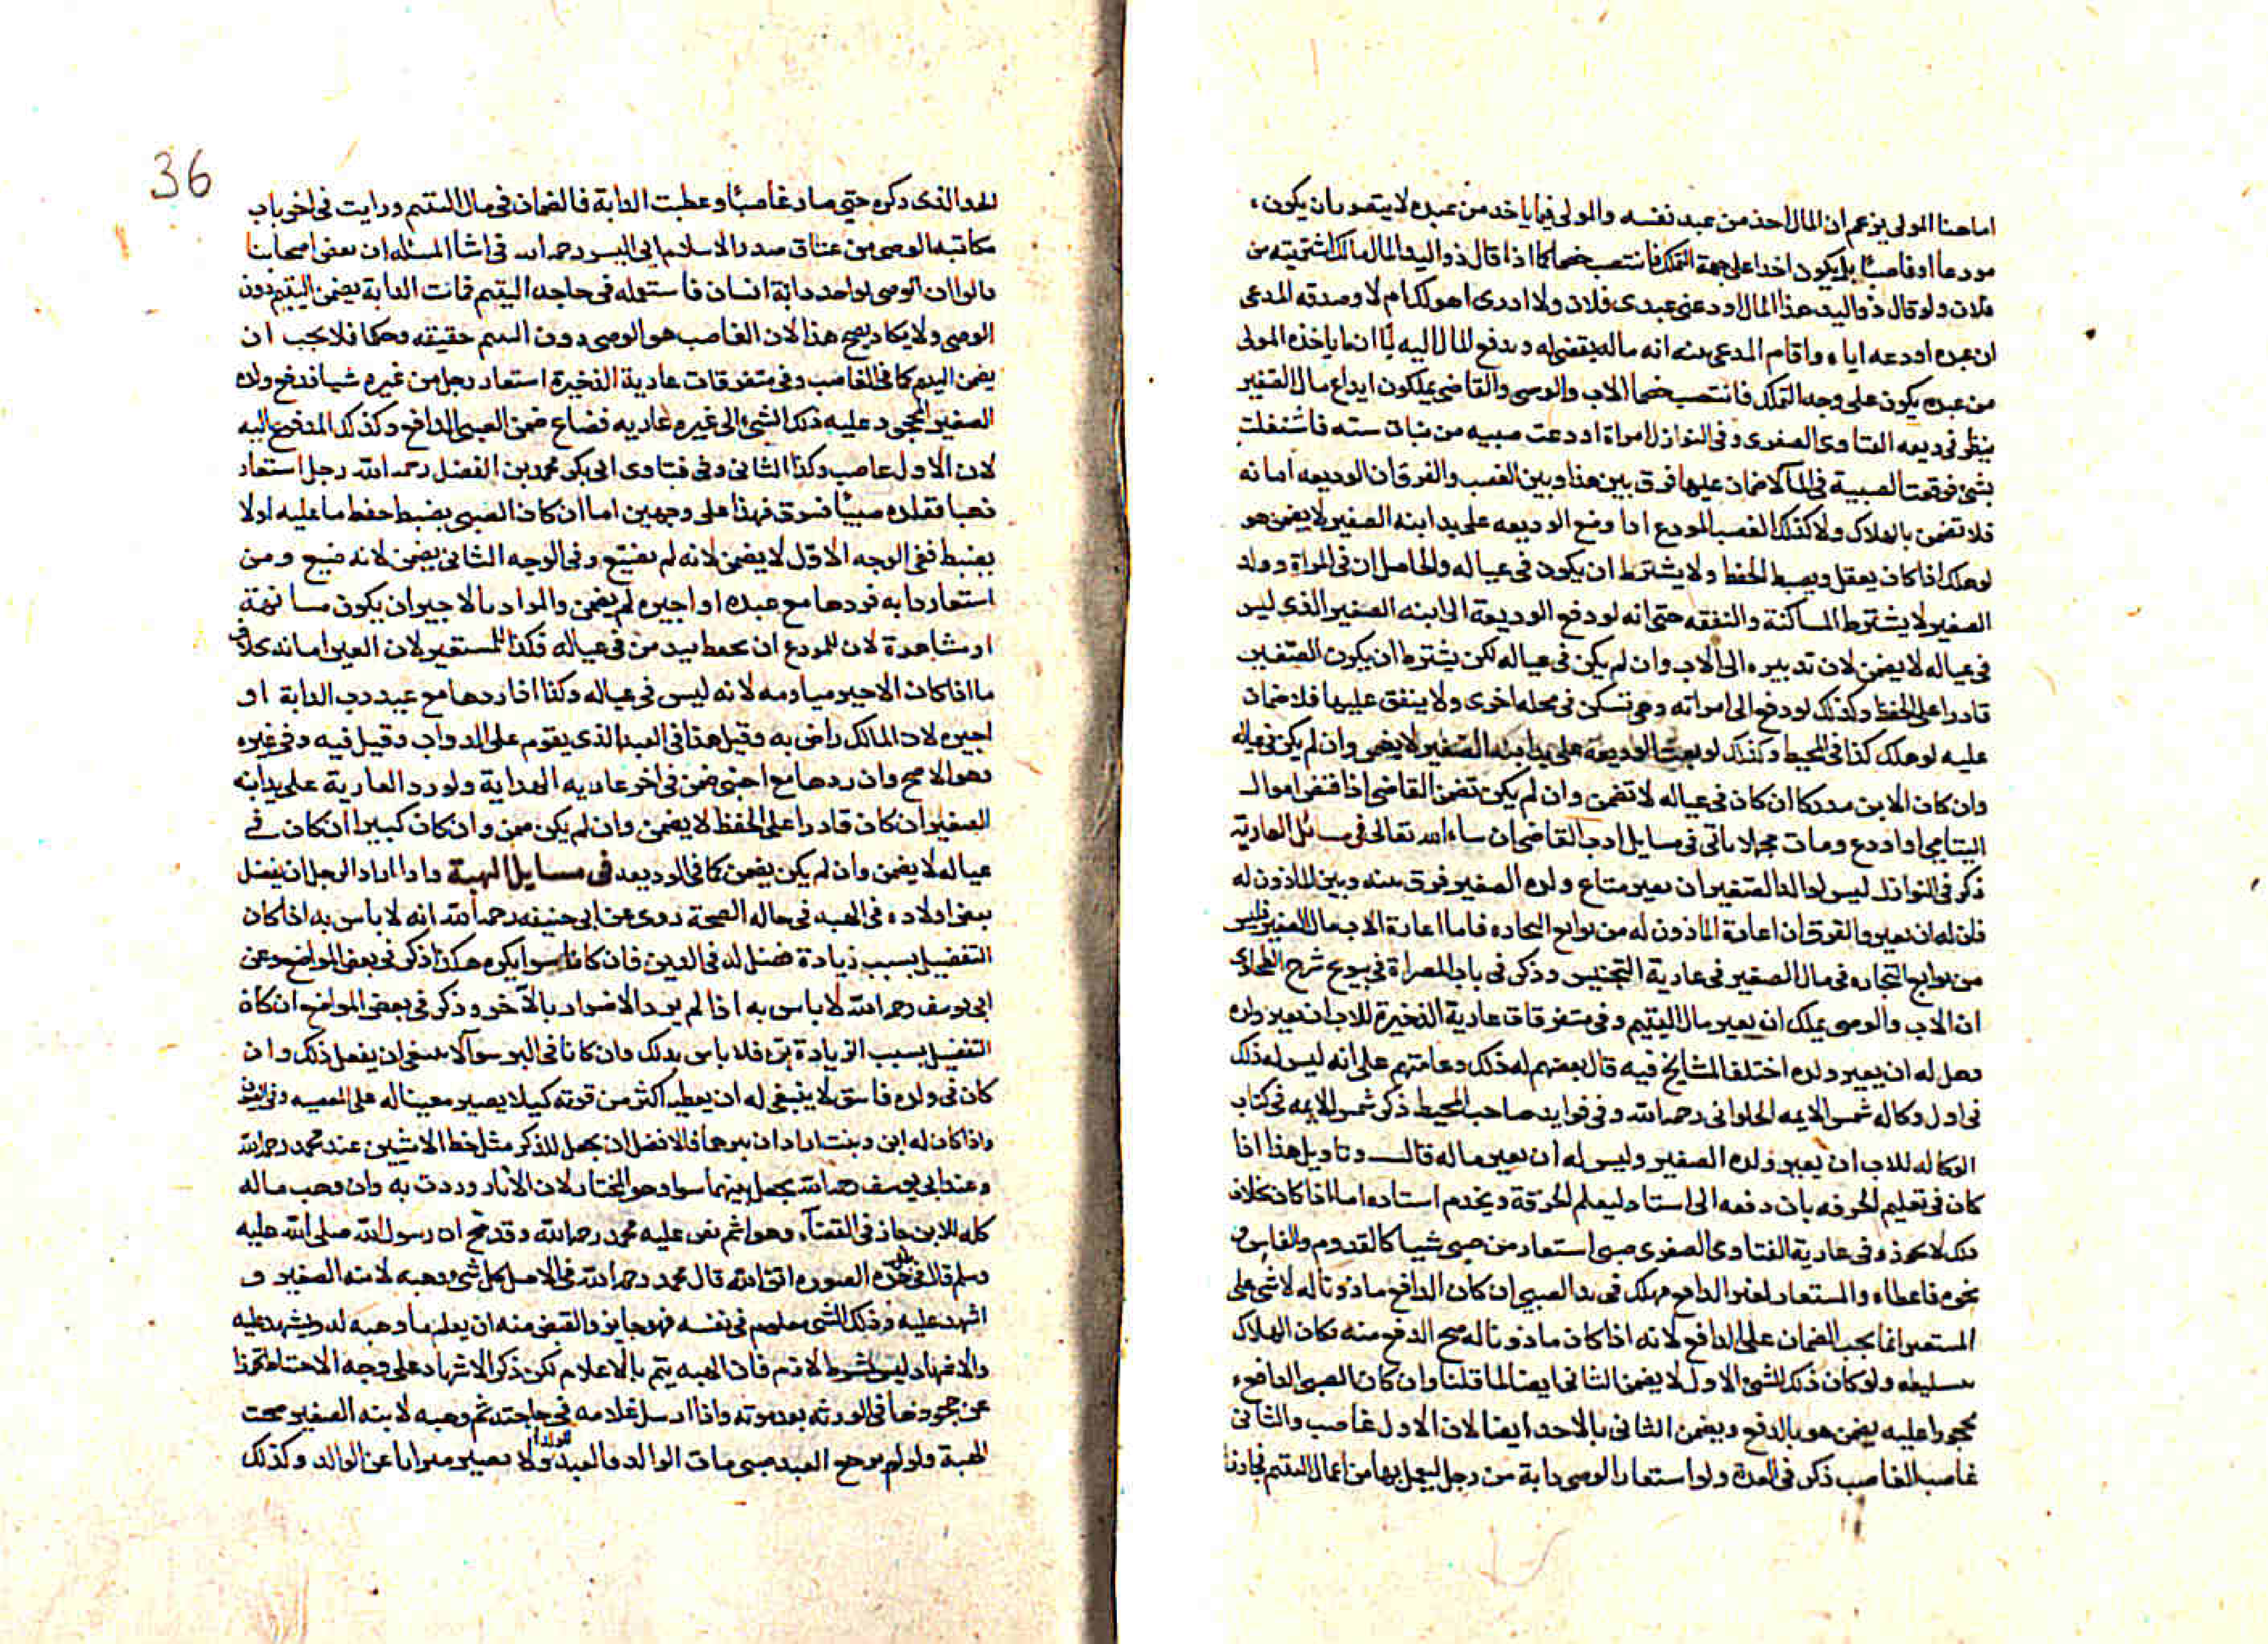 اما هنا المولى يزعم ان المال اخذ من عبد نفسه والمولى فيما ياخذ من عبده لا يتصور ان يكون
مودعا او غاصبا بل يكون اخذا على جهة التملك فانتصب خصما كما اذا قال ذو اليد المال مالك اشتريته من
فلان ولو قال ذو اليد هذا المال اودعنى عبدى فلان ولا ادرى اهو لك ام لا وصدقه المدعى
ان عبده اودعه اياه واقام المدعى بينه انه ماله يقضى له ويدفع المال اليه لما ان ما ياخذه المولى
من عبده يكون على وجه التملك فانتصب خصما الاب والوصى والقاضى يملكون ايداع مال الصغير
ينظر فى وديعه الفتاوى الصغرى وفى النوازل امراة اودعت صبيه من بنات سنه فاشتغلت
بشئ فوقعت الصبية فى الما لا ضمان عليها فرق بين هذا وبين الغصب والفرق ان الوديعه امانه
فلا تضمن بالهلاك ولا كذلك الغصب المودع اذا وضع الوديعه على يد ابنه الصغير لا يضمن هو
لو هلك اذا كان يعقل ويضبط الحفظ ولا يشترط ان يكون فى عياله والحاصل ان فى المراة وولد
الصغير لا يشترط المساكنة والنفقه حتى انه لو دفع الوديعة الى ابنه الصغير الذى ليس
فى عياله لا يضمن لان تدبيره الى الاب وان لم يكن فى عياله لكن يشترط ان يكون الصغير
قادرا على الحفظ وكذلك لو دفع الى امراته وهى تسكن فى محله اخرى ولا ينفق عليها فلا ضمان
عليه لو هلك كذا فى المحيط وكذلك لو بعث الوديعة على يد ابنه الصغير لا يضمن وان لم يكن فى عياله
وان كان الابن مدركا ان كان فى عياله لا تضمن وان لم يكن تضمن القاضى اذا قبض اموال
اليتامى او اودع ومات مجهلا ياتى فى مسايل ادب القاضى ان ساء الله تعالى فى مسائل العارية
ذكر فى النوازل ليس لوالد الصغير ان يعير متاع ولده الصغير فرق بينه وبين الماذون له
فان له ان يعير والفرق ان اعارة الماذون له من توابع التجاره فاما اعارة الاب مال الصغير فليس
من توابع التجاره فى مال الصغير فى عارية التجنيس وذكر فى باب المصراة فى بيوع شرح الطحاوى
ان الاب والوصى يملك ان يعير مال اليتيم وفى متفرقات عارية الذخيرة للاب ان يعير ولده
وهل له ان يعير ولده اختلف المشايخ فيه قال بعضهم له ذلك وعامتهم على انه ليس له ذلك
فى اول وكاله شمس الايمه الحلوانى رحمه الله وفى فوايد صاحب المحيط ذكر شمس الايمه فى كتاب
الوكاله للاب ان يعير ولده الصغير وليس له ان يعير ماله قالــ وتاويل هذا اذا
كان فى تعليم الحرفه بان دفعه الى استاد ليعلم الحرفة ويخدم استاده اما اذا كان بخلاف
ذلك لا يجوز وفى عارية الفتاوى الصغرى صبى استعار من صبى شيا كالقدوم والفاس و
نحوه فاعطاه والمستعار لغير الدافع فهلك فى يد الصبى ان كان الدافع ماذونا له لا شئ على
المستعير انما يجب الضمان على الدافع لانه اذا كان ماذونا له صح الدفع منه فكان الهلاك
بتسليطه ولو كان ذلك الشئ الاول لا يضمن الثانى ايضا لما قلنا وان كان الصبى الدافع
محجورا عليه يضمن هو بالدفع ويضمن الثانى بالاخذ ايضا لان الاول غاصب والثانى
غاصب الغاصب ذكر فى العدة ولو استعار الوصى دابة من رجل ليعمل بها من اعمال اليتيم فجاوز
36
الحد الذى ذكره حتى صار غاصبا وعطبت الدابة فالضمان فى مال اليتيم ورايت فى اخر باب
مكاتبه الوصى من عتاق صدر الاسلام ابى اليسر رحمه الله فى اشا المسئله ان بعض اصحابنا
قالوا ان الوصى لو اخذ دابة انسان فاستعمله فى حاجه اليتيم فماتت الدابة يضمن اليتيم دون
الوصى ولا يكاد يصح هذا لان الغاصب هو الوصى دون اليتيم حقيقه وحكما فلا يجب ان
يضمن اليتيم كما فى الغاصب وفى متفرقات عارية الذخيرة استعار رجل من غيره شيا فدفع ولده
الصغير المحجور عليه ذلك الشئ الى غيره عاريه فضاع ضمن الصبى الدافع وكذلك المدفوع اليه
لان الاول غاصب وكذا الثانى وفى فتاوى ابى بكر محمد بن الفضل رحمه الله رجل استعار
ذهبا فقلده صبيا فسرق فهذا على وجهين اما ان كان الصبى يضبط حفظ ما عليه اولا
يضبط ففى الوجه الاول لا يضمن لانه لم يضيع وفى الوجه الثانى يضمن لانه ضيع ومن
استعار دابه فردها مع عبده او اجيره لم يضمن والمراد بالاجير ان يكون مسانهة
او مشاهرة لان للمودع ان يحفظ بيد من فى عياله فكذا للمستعير لان العين امانه بخلاف
ما اذا كان الاجير مياومه لانه ليس فى عياله وكذا اذا ردها مع عبد رب الدابة او
اجيره لان المالك راض به وقيل هذا فى العبد الذى يقوم على الدواب وقيل فيه وفى غيره
وهو الاصح وان ردها مع اجنبى ضمن فى اخر عاريه الهداية ولو رد العارية على يد ابنه
الصغير ان كان قادرا على الحفظ لا يضمن وان لم يكن ضمن وان كان كبيرا ان كان فى
عياله لا يضمن وان لم يكن يضمن كما فى الوديعه فى مسايل الهبة واذا اراد الرجل ان يفضل
بعض اولاده فى الهبه فى حاله الصحة روى عن ابى حنيفه رحمه الله انه لا باس به اذا كان
التفضيل بسبب زيادة فضل له فى الدين فان كانا سوا يكره هكذا ذكر فى بعض المواضع وعن
ابى يوسف رحمه الله لا باس به اذا لم يرد الاضرار بالآخر وذكر فى بعض المواضع ان كان
التفضيل بسبب الزيادة بره فلا باس بذلك وان كانا فى البر سوآ لا ينبغى ان يفعل ذلك وان
كان فى ولده فاسق لا ينبغى له ان يعطيه اكثر من قوته كيلا يصير معينا له على المعصيه
واذا كان له ابن وبنت اراد ان يبرهما فالافضل ان يجعل للذكر مثل حظ الانثيين عند محمد رحمه الله
وعند ابى يوسف رحمه الله يجعل بينهما سوا وهو المختار لان الاثار وردت به وان وهب ماله
كله للابن جاز فى القضآء وهو اثم نص عليه محمد رحمه الله وقد صح ان رسول الله صلى الله عليه
وسلم قال فى هذه الصوره اتق الله قال محمد رحمه الله فى الاصل كل شئ وهبه لابنه الصغير و
اشهد عليه وذلك الشئ معلوم فى نفسه فهو جايز والقبض منه ان يعلم ما وهبه له ويشهد عليه
والاشهاد ليس بشرط لازم فان الهبه يتم بالاعلام لكن ذكر الاشهاد على وجه الاحتياط تحرزا
عن جحود باقى الورثه بعد موته واذا ارسل غلامه فى حاجته ثم وهبه لابنه الصغير صحت
الهبة ولو لم يرجع العبد حتى مات الوالد فالعبد للولد ولا يصير ميراثا عن الوالد وكذلك